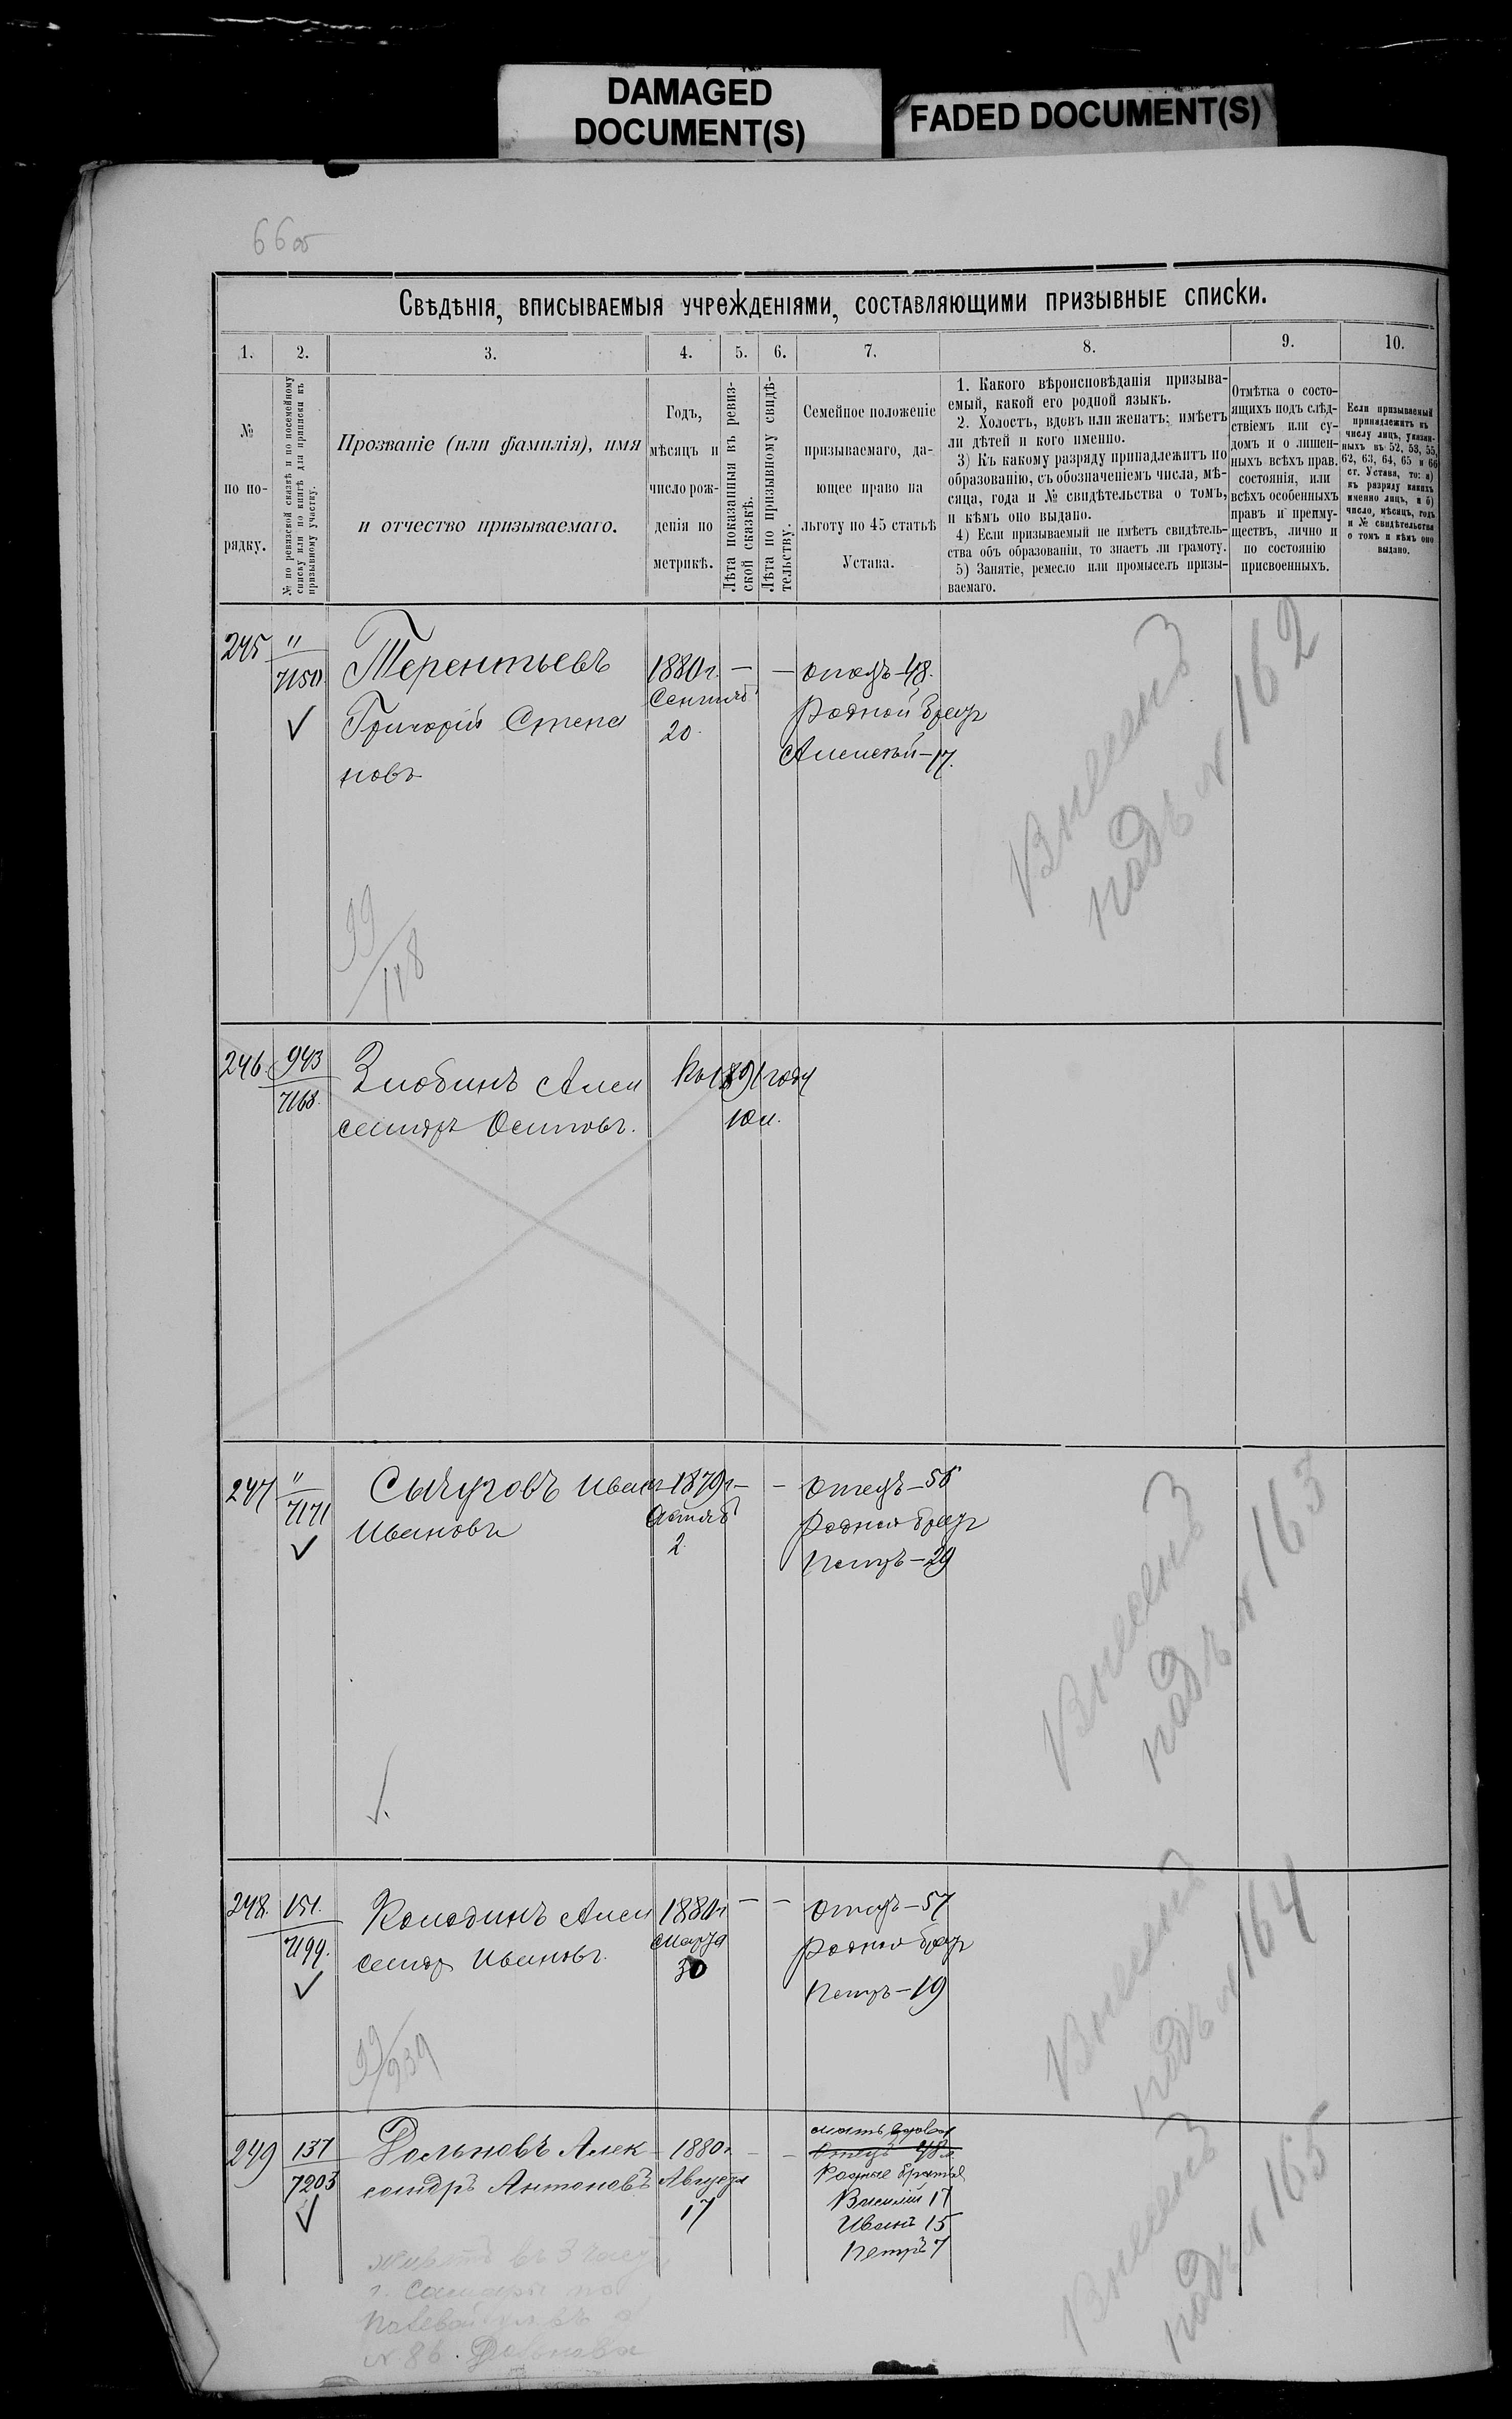 DAMAGED
DOCUMENT(S)
FADED DOCUMENT(S)
66об
Свѣдѣнія, вписываемыя учрежденіями, составляющими призывные списки.
1. 2. 3. 4. 5. 6. 7. 8. 9. 10.
№
по по-
рядку.
№ по ревизской сказкѣ и по посемейному
списку или по книгѣ для приписки къ
призывному участку.
Прозваніе (или фамилія), имя
и отчество призываемаго.
Годъ,
мѣсяцъ и
число рож-
денія по
метрикѣ.
Лѣта показанныя въ ревиз-
ской сказкѣ.
Лѣта по призывному свидѣ-
тельству.
Семейное положеніе
призываемаго, да-
ющее право на
льготу по 45 статьѣ
Устава.
1. Какого вѣроисповѣданія призыва-
емый, какой его родной языкъ.
2. Холостъ, вдовъ или женатъ; имѣетъ
ли дѣтей и кого именно.
3) Къ какому разряду принадлежитъ по
образованію, съ обозначеніемъ числа, мѣ-
сяца, года и № свидѣтельства о томъ,
и кѣмъ оно выдано.
4) Если призываемый не имѣетъ свидѣтель-
ства объ образованіи, то знаетъ ли грамоту.
5) Занятіе, ремесло или промыселъ призы-
ваемаго.
Отмѣтка о состо-
ящихъ подъ слѣд-
ствіемъ или су-
домъ и о лишен-
ныхъ всѣхъ прав.
состоянія, или
всѣхъ особенныхъ
правъ и преиму-
ществъ, лично и
по состоянію
присвоенныхъ.
Если призываемый
принадлежитъ къ
числу лицъ, указан-
ныхъ въ 52, 53, 55,
62, 63, 64, 65 и 66
ст. Устава, то: а)
къ разряду какихъ
именно лицъ, и б)
число, мѣсяцъ, годъ
и № свидѣтельства
о томъ и кѣмъ оно
выдано.
245 "
7150
Терентьевъ
Григорій Степа
новъ
1880г.
Сентяб
20.
— —
отецъ-48.
Родной брат
Алексѣй-17.
Внесенъ
подъ № 162
99/118
246. 943
7168.
Злобинъ Алек
сандръ Осиповъ.
Къ 1891 году
10 л.
247 "
7171
Сычуговъ Иван
Ивановъ
1879г
Октяб
2
— —
Отецъ-56
Родной брат
Петръ-29
Внесенъ
подъ № 163
248. 151.
7199.
Колодинъ Алек
сандр Ивановъ.
1880г
Марта
30
— —
Отецъ-57
Родной брат
Петръ-19
Внесенъ
подъ № 164
99/939
249 137
7203
Дольновъ Алек
сандръ Антоновъ
1880г.
Августа
17
— —
мать вдова
Отецъ 48л
Родные братья
Василій 17
Иванъ 15
Петръ 7
Внесенъ
подъ № 165
живетъ въ 3 части
г. Самары по
Полевой ул. въ д
№ 86. Дольнова